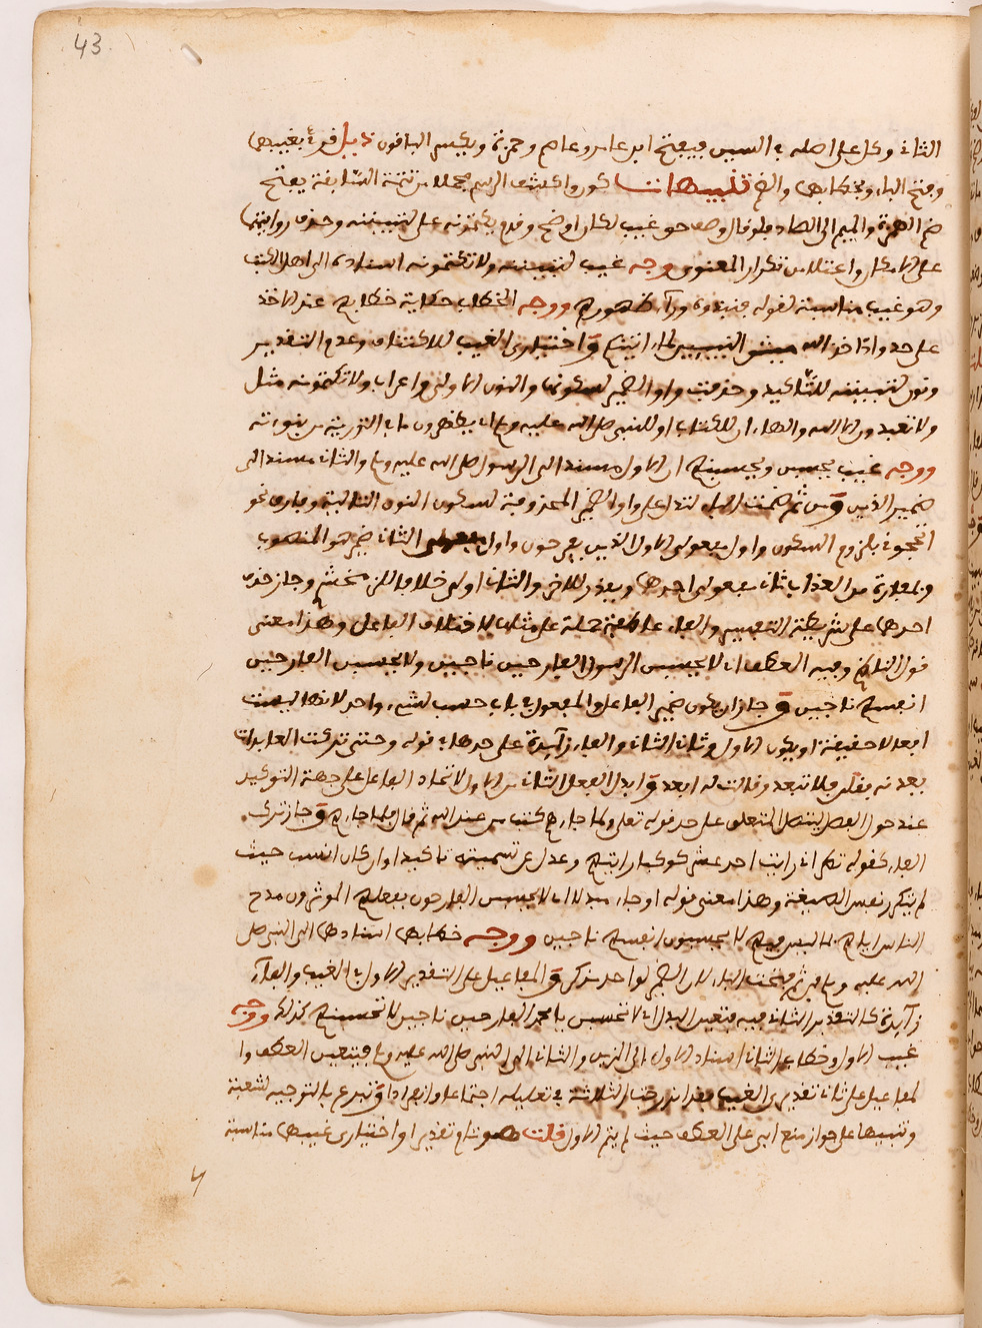 43
الثاني وكل على اصله في السين فيفتح ابن عامر وعاصم وحمزة ويكسر الباقون ذيل قرئ بغيبهما
وفتح الباء وبخطابهما والضم تنبيهات
ضم الهمزة والميم الى الصاد فلو قال وصف حق غيب لكان اوضح وقدم يكتمونه على لتبيننه وحذف
على الامكان واعتلا من تكرار المعنوي وجه غيب لتبيننه ولا تكتمونه اسناده الى اهل الكتب
وهو غيب مناسبة لقوله فنبذوه وراء ظهورهم ووجه الخطاب حكاية خطابهم عند الاخذ
على حد واذ اخذ الله ميثق النبيين لما اتيتكم و اختياري الغيب للاكتناف وعدم التقدير
ونون لتبيننه للتاكيد وحذفت واو الضمير لسكونها والنون الاولى و اعراب ولا تكتمونه مثل
ولا تعبدون الا الله والهاء ان للكتاب او للنبي صلى الله عليه وسلم اي يظهرون ما في التورية من نبوءته
ووجه غيب يحسبن ويحسبنهم ان الاول مسند الى الرسول صلى الله عليه وسلم والثاني مسند الى
ضمير الذين و من ثم ضمت الباء لتدل على واو الضمير المحذوفة لسكون النون الثانية وفارق نحو
اتحجوني بلزوم السكون واول مفعولي الاول الذين يفرحون واول مفعولي الثاني ضميرهم المنصوب
وبمفازة من العذاب ثاني مفعولي احدهما ويقدر للاخر والثاني اولى خلافا للزمخشري وجاز حذف
احدهما على شريطة التفسير والفاء عاطفة جملة على مثلها لاختلاف الفاعل وهذا معنى
قول الناظم وفيه العطف اي لا يحسبن الرسول الفارحين ناجين ولا يحسبن الفارحين
انفسهم ناجين و جاز ان يكون ضمير الفاعل والمفعول في باب حسب لشيء واحد لانها ليست
افعالا حقيقة او يكون الاول وثاني الثاني والفاء زايدة على حدها في قوله وحتى تركت العايدات
يعدنه يقلن فلا تبعد وقلت له ابعد و ابدل الفعل الثاني من الاول لاتحاد الفاعل على جهة التوكيد
عند حول الفصل ليتصل المتعلق على حد قوله تعلى ولما جاءهم كتب من عند الله ثم قال فلما جاءهم و جاز ترك
الفاء كقوله تعلى اني رايت احد عشر كوكبا رايتهم وعدل عن تسميته تاكيدا وان كان انسب حيث
لم يتكرر نفس الصيغة وهذا معنى قوله او جاء مبدلا اي لا يحسبن الفارحون بفعلهم الموثرون مدح
الناس اياهم بما ليس فيهم لا يحسبون انفسهم ناجين ووجه خطابهما اسنادهما الى النبي صلى
الله عليه وسلم ومن ثم فتحت الباء لان الضمير لواحد مذكر و المفاعيل على التقدير الاول في الغيب والفاء
زايدة كالتقدير الثاني فيه فتعين البدل اي لا تحسبن يا محمد الفارحين ناجين لا تحسبنهم كذلك ووجه
غيب الاول وخطاب الثاني اسناد الاول الى الذين والثاني الى النبي صلى الله عليه وسلم فيتعين العطف وا
لمفاعيل على ثاني تقديري الغيب
وتنبيها على جواز منع ابي علي العطف حيث لم يتم الاول قلت هو تام تقديرا و اختياري غيبهما مناسبة